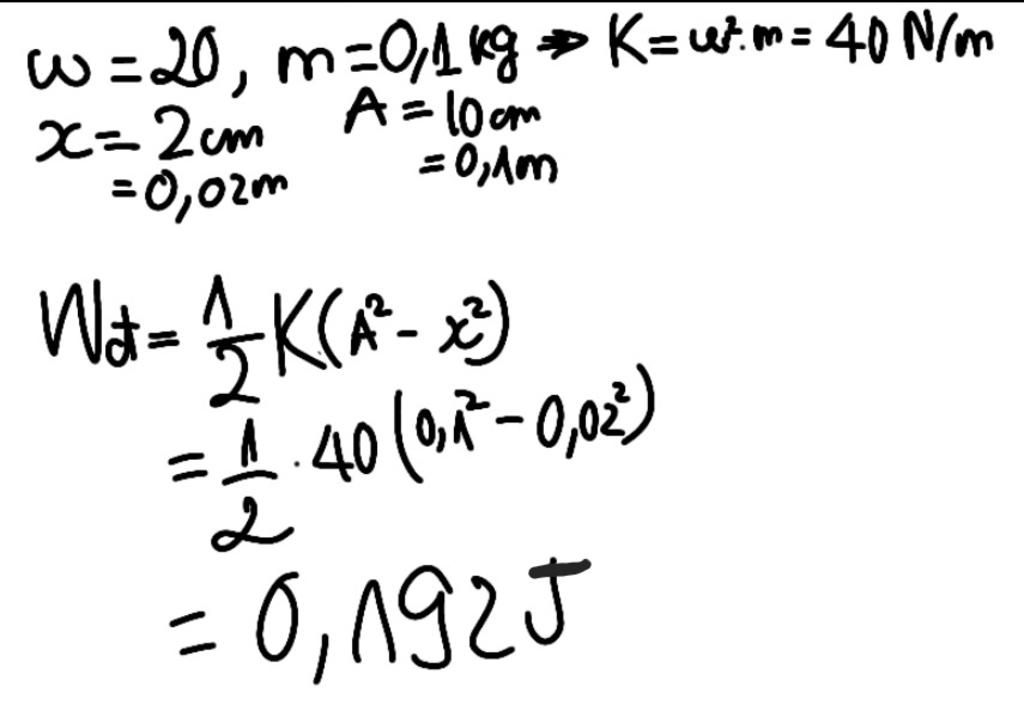 ω = 20, m = 0,1 kg ⇒ K = ω².m = 40 N/m
x = 2 cm A = 10 cm
= 0,02m = 0,1m
Wđ = 1/2 K(A² - x²)
= 1/2 . 40 (0,1² - 0,02²)
= 0,192 J